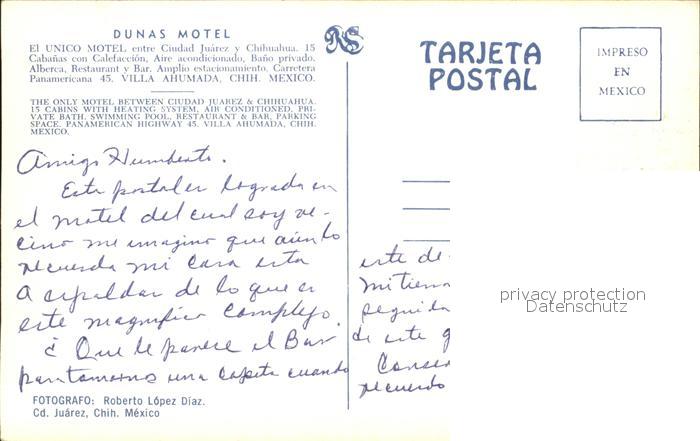 DUNAS MOTEL
El UNICO MOTEL entre Ciudad Juárez y Chihuahua. 15
Cabañas con Calefacción, Aire acondicionado, Baño privado.
Alberca, Restaurant y Bar. Amplio estacionamiento, Carretera
Panamericana 45. VILLA AHUMADA, CHIH. MEXICO.
THE ONLY MOTEL BETWEEN CIUDAD JUAREZ & CHIHUAHUA.
15 CABINS WITH HEATING SYSTEM, AIR CONDITIONED, PRI-
VATE BATH. SWIMMING POOL, RESTAURANT & BAR, PARKING
SPACE. PANAMERICAN HIGHWAY 45. VILLA AHUMADA, CHIH.
MEXICO.
Amigo Humberto.
Esta postal es lograda en
el motel del cual soy ve-
cino me imagino que aun lo
recuerda mi casa esta
A espaldas de lo que es
este magnifico Complejo.
¿ Que le parece el Bar
para tomarnos una copita cuando
FOTOGRAFO: Roberto López Díaz.
Cd. Juárez, Chih. México
RS
TARJETA
POSTAL
IMPRESO
EN
MEXICO
este de
mi tierr
seguida
de este g
Conser
recuerdo
privacy protection
Datenschutz